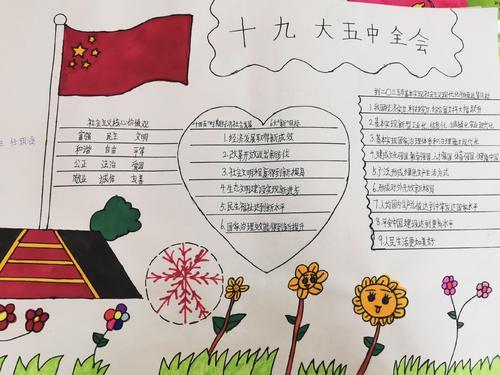 十九大五中全会
社会主义核心价值观
富强 民主 文明
和谐 自由 平等
公正 法治 爱国
敬业 诚信 友善
"十四五"时期经济社会发展 6大"新"目标
1.经济发展取得新成效
2.改革开放迈出新步伐
3.社会文明程度得到新提高
4.生态文明建设实现新进步
5.民生福祉达到新水平
6.国家治理效能得到新提升
到二〇三五年基本实现社会主义现代化
1.我国经济实力,科技实力,
2.基本实现新型工业化,信息化,城镇化,农业现代化
3.基本实现国家治理体系和治理能力现代化
4.建成文化强国,教育强国,人才强国,体育强国,健康中国
5.广泛形成绿色生产生活方式
6.形成对外开放新格局
7.人均国内生产总值达到中等发达国家水平
8.平安中国建设达到更高水平
9.人民生活更加美好